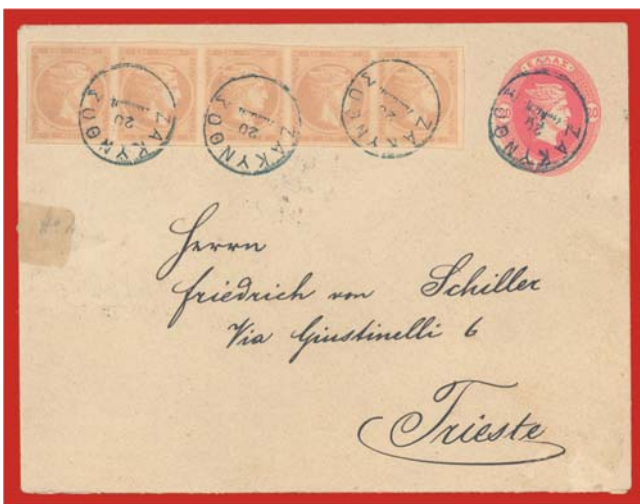 ΕΛΛΑΣ
20 20
ΖΑΚΥΝΘΟΣ
20
ΖΑΚΥΝΘΟΣ
20
ΖΑΚΥΝΘΟΣ
20
ΖΑΚΥΝΘΟΣ
20
Herrn
Friedrich von Schiller
Via Giustinelli 6
Trieste